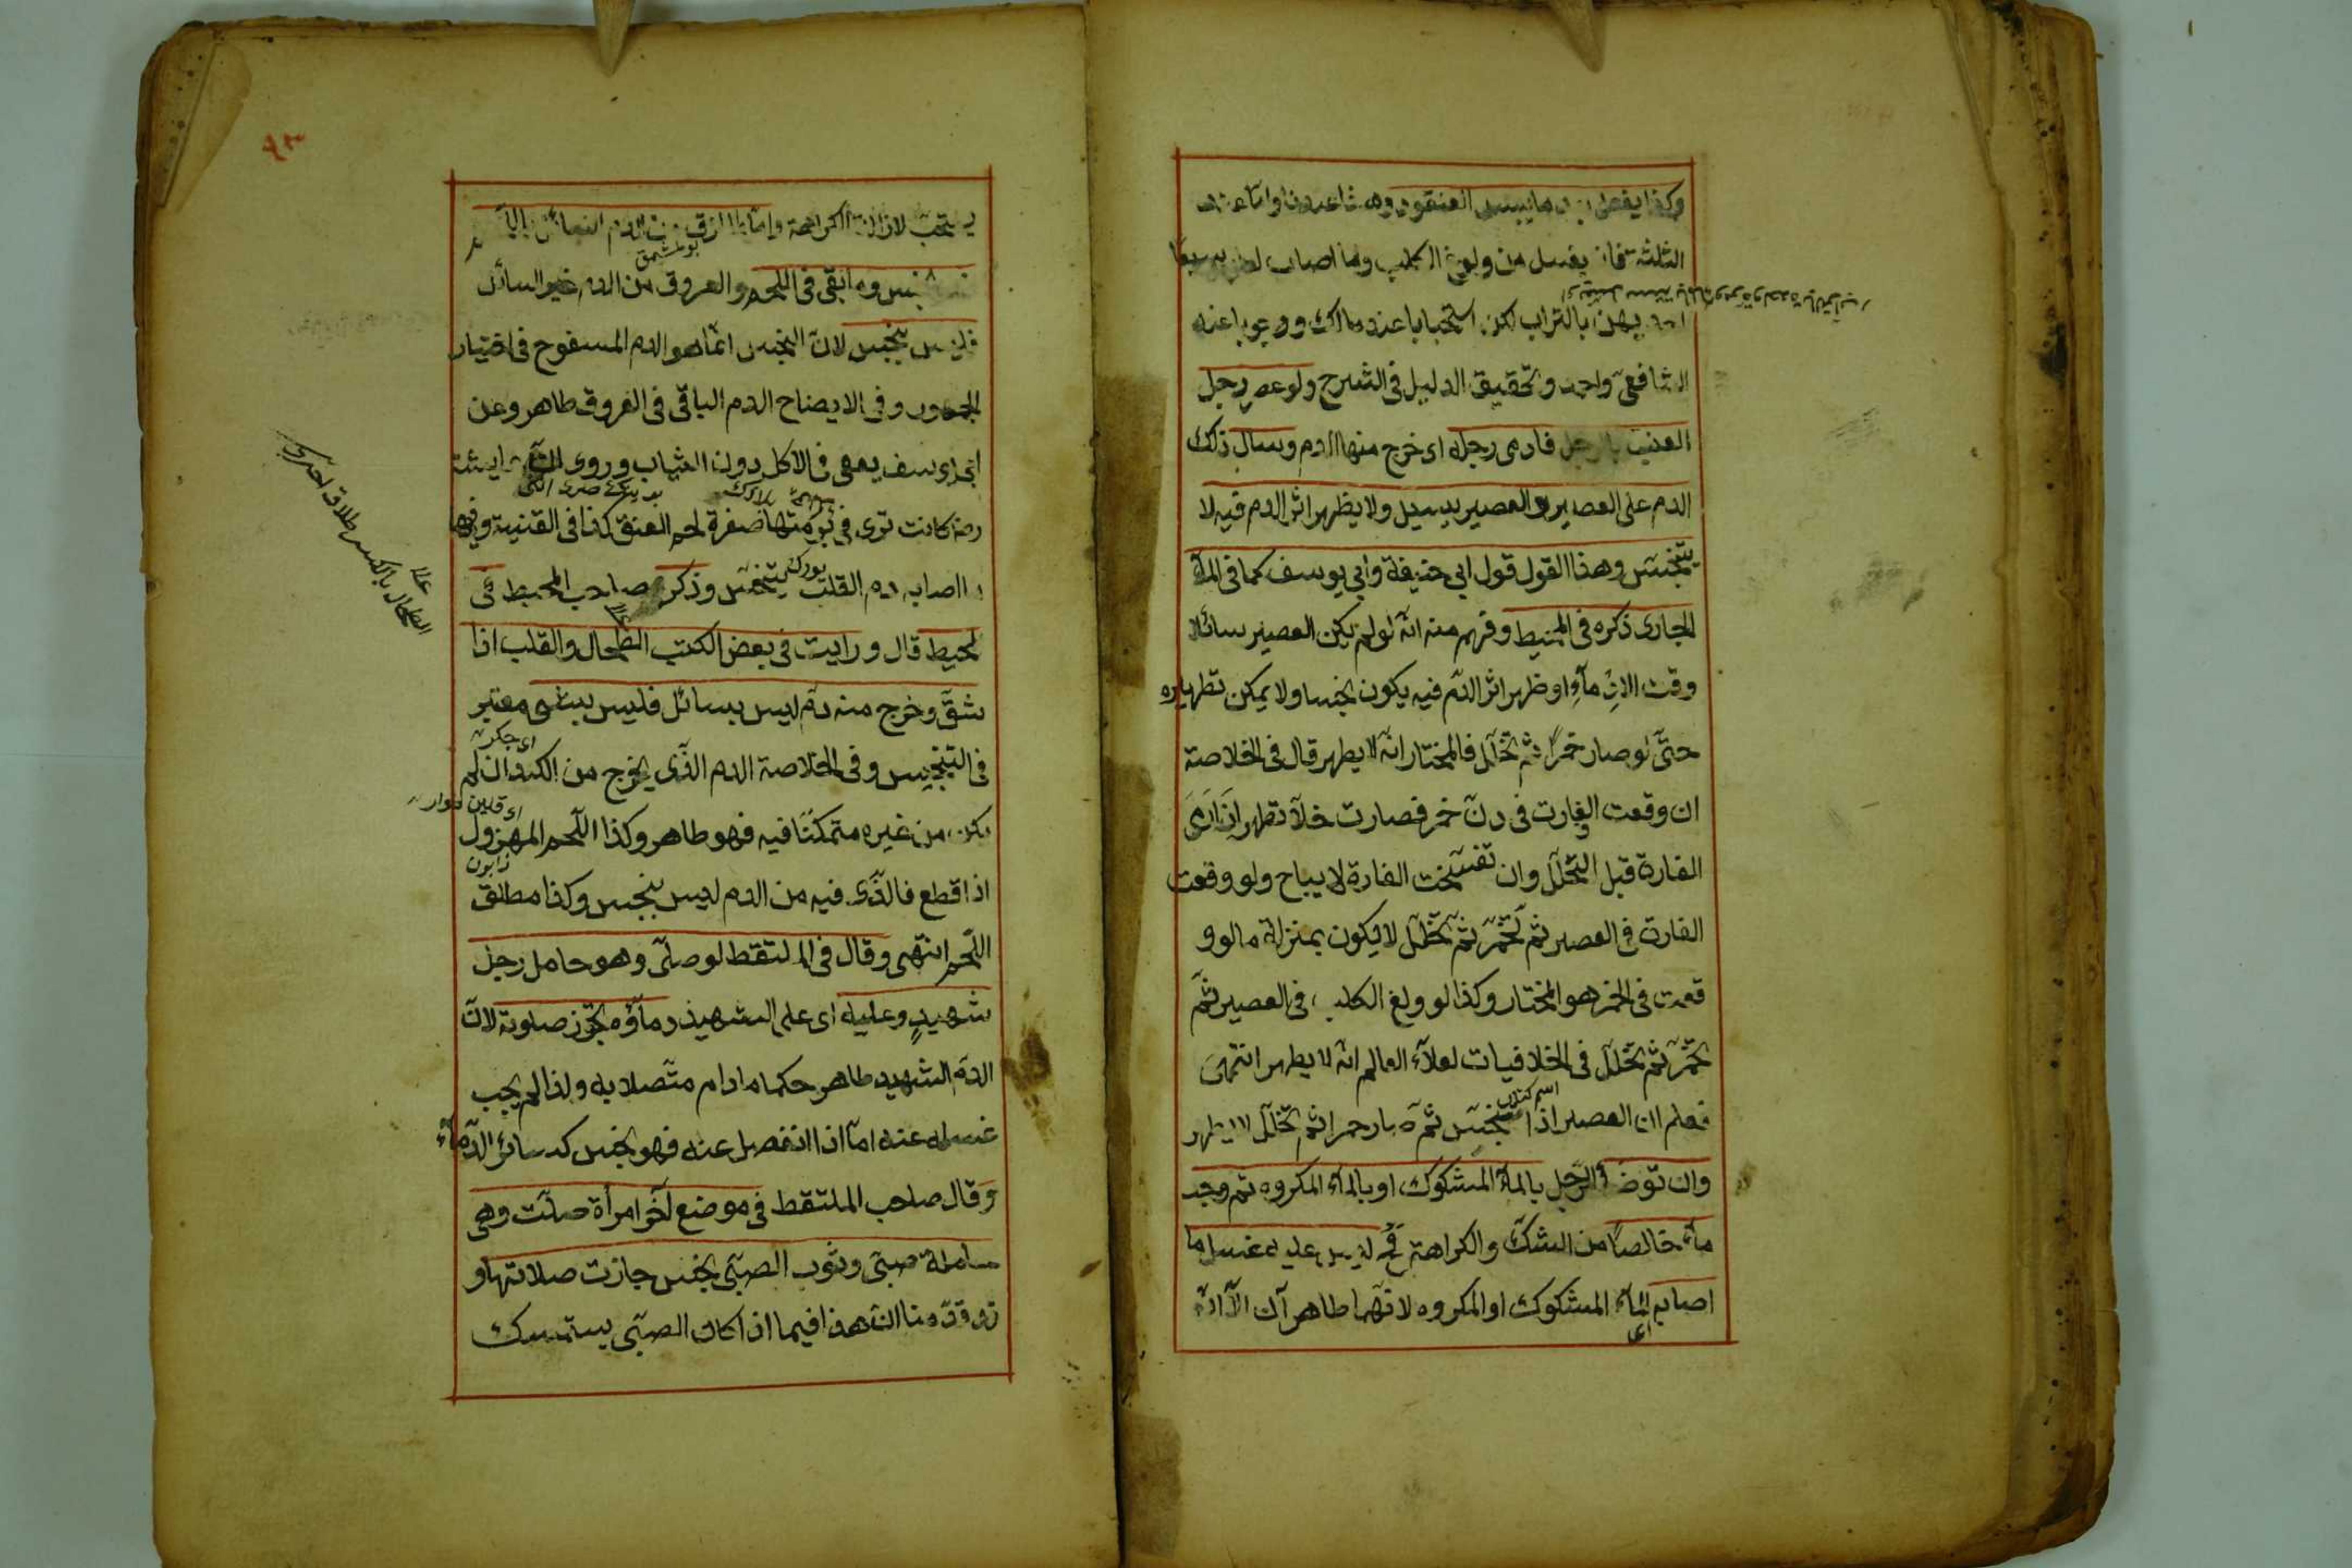 وكذا يفعل ما يبس العنقود وهذا عندنا واما عند
الثلثة فانه يغسل من ولوغ الكلب وما اصابه لعابه سبعا
احديهن بالتراب لكن استحبابا عند مالك ووجوبا عند
الشافعى واحمد وتحقيق الدليل فى الشرح ولو عصر رجل
العنب بالرجل فادمى رجله اى خرج منها الدم وسال ذلك
الدم على العصير والعصير يسيل ولا يظهر اثر الدم فيه لا
يتنجس وهذا القول قول ابى حنيفة وابى يوسف كما فى الماء
الجارى ذكره فى المحيط وفهم منه انه لو لم يكن العصير سائلا
وقت الادماء او ظهر اثر الدم فيه يكون نجسا ولا يمكن تطهيره
حتى لو صار خمرا ثم تخلل فالمختار انه لا يطهر قال فى الخلاصة
ان وقعت الفارة فى دن خمر فصارت خلا تطهر اذا رمى
الفارة قبل التخلل وان تفسخت الفارة لا يباح ولو وقعت
الفارة فى العصير ثم تخمر ثم تخلل لا يكون بمنزلة ما لو و
قعت فى الخمر هو المختار وكذا لو ولغ الكلب فى العصير ثم
تخمر ثم تخلل فى الخلافيات لعلاء العالم انه لا يطهر انتهى
اسم كتاب
فعلم ان العصير اذا تنجس ثم صار خمرا ثم تخلل لا يطهر
وان توضأ الرجل بالماء المشكوك او بالماء المكروه ثم وجد
ماء خالصا من الشك والكراهة فح ليس عليه غسل ما
اصابه الماء المشكوك او المكروه لانهما طاهران الا انه
اى
٩٣
يستحب لازالة الكراهة
نجس وما بقى فى اللحم والعروق من الدم غير السائل
فليس بنجس لان النجس انما هو الدم المسفوح فى اختيار
الجمهور وفى الايضاح الدم الباقى فى العروق طاهر وعن
ابى يوسف يعفى فى الاكل دون الثياب وروى ان عايشة
رضه كانت ترى فى برمتها صفرة لحم العنق كذا فى القنية وفيها
اصابه دم القلب يتنجس وذكر صاحب المحيط فى
المحيط قال ورايت فى بعض الكتب الطحال والقلب اذا
شق وخرج منه دم ليس بسائل فليس بشئ معتبر
اى جكر
فى التنجيس وفى الخلاصة الدم الذى يخرج من الكبد ان لم
يكن من غيره متمكنا فيه فهو طاهر وكذا اللحم المهزول
اذا قطع فالذى فيه من الدم ليس بنجس وكذا مطلق
اللحم انتهى وقال فى الملتقط لو صلى وهو حامل رجل
شهيد وعليه اى على الشهيد دماؤه تجوز صلوته لان
الدم الشهيد طاهر حكما مادام متصلا به ولذا لم يجب
غسله عنه اما اذا انفصل عنه فهو نجس كسائر الدماء
وقال صاحب الملتقط فى موضع آخر امرأة صلت وهى
حاملة صبى وثوب الصبى نجس جازت صلاتها و
قد قدمنا ان هذا فيما اذا كان الصبى يستمسك
الطحال بالكسر طلاق